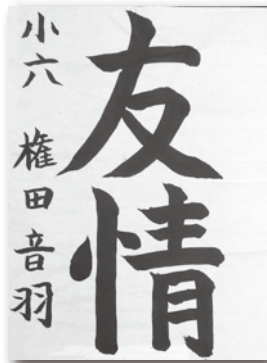 友情
小六 権田音羽